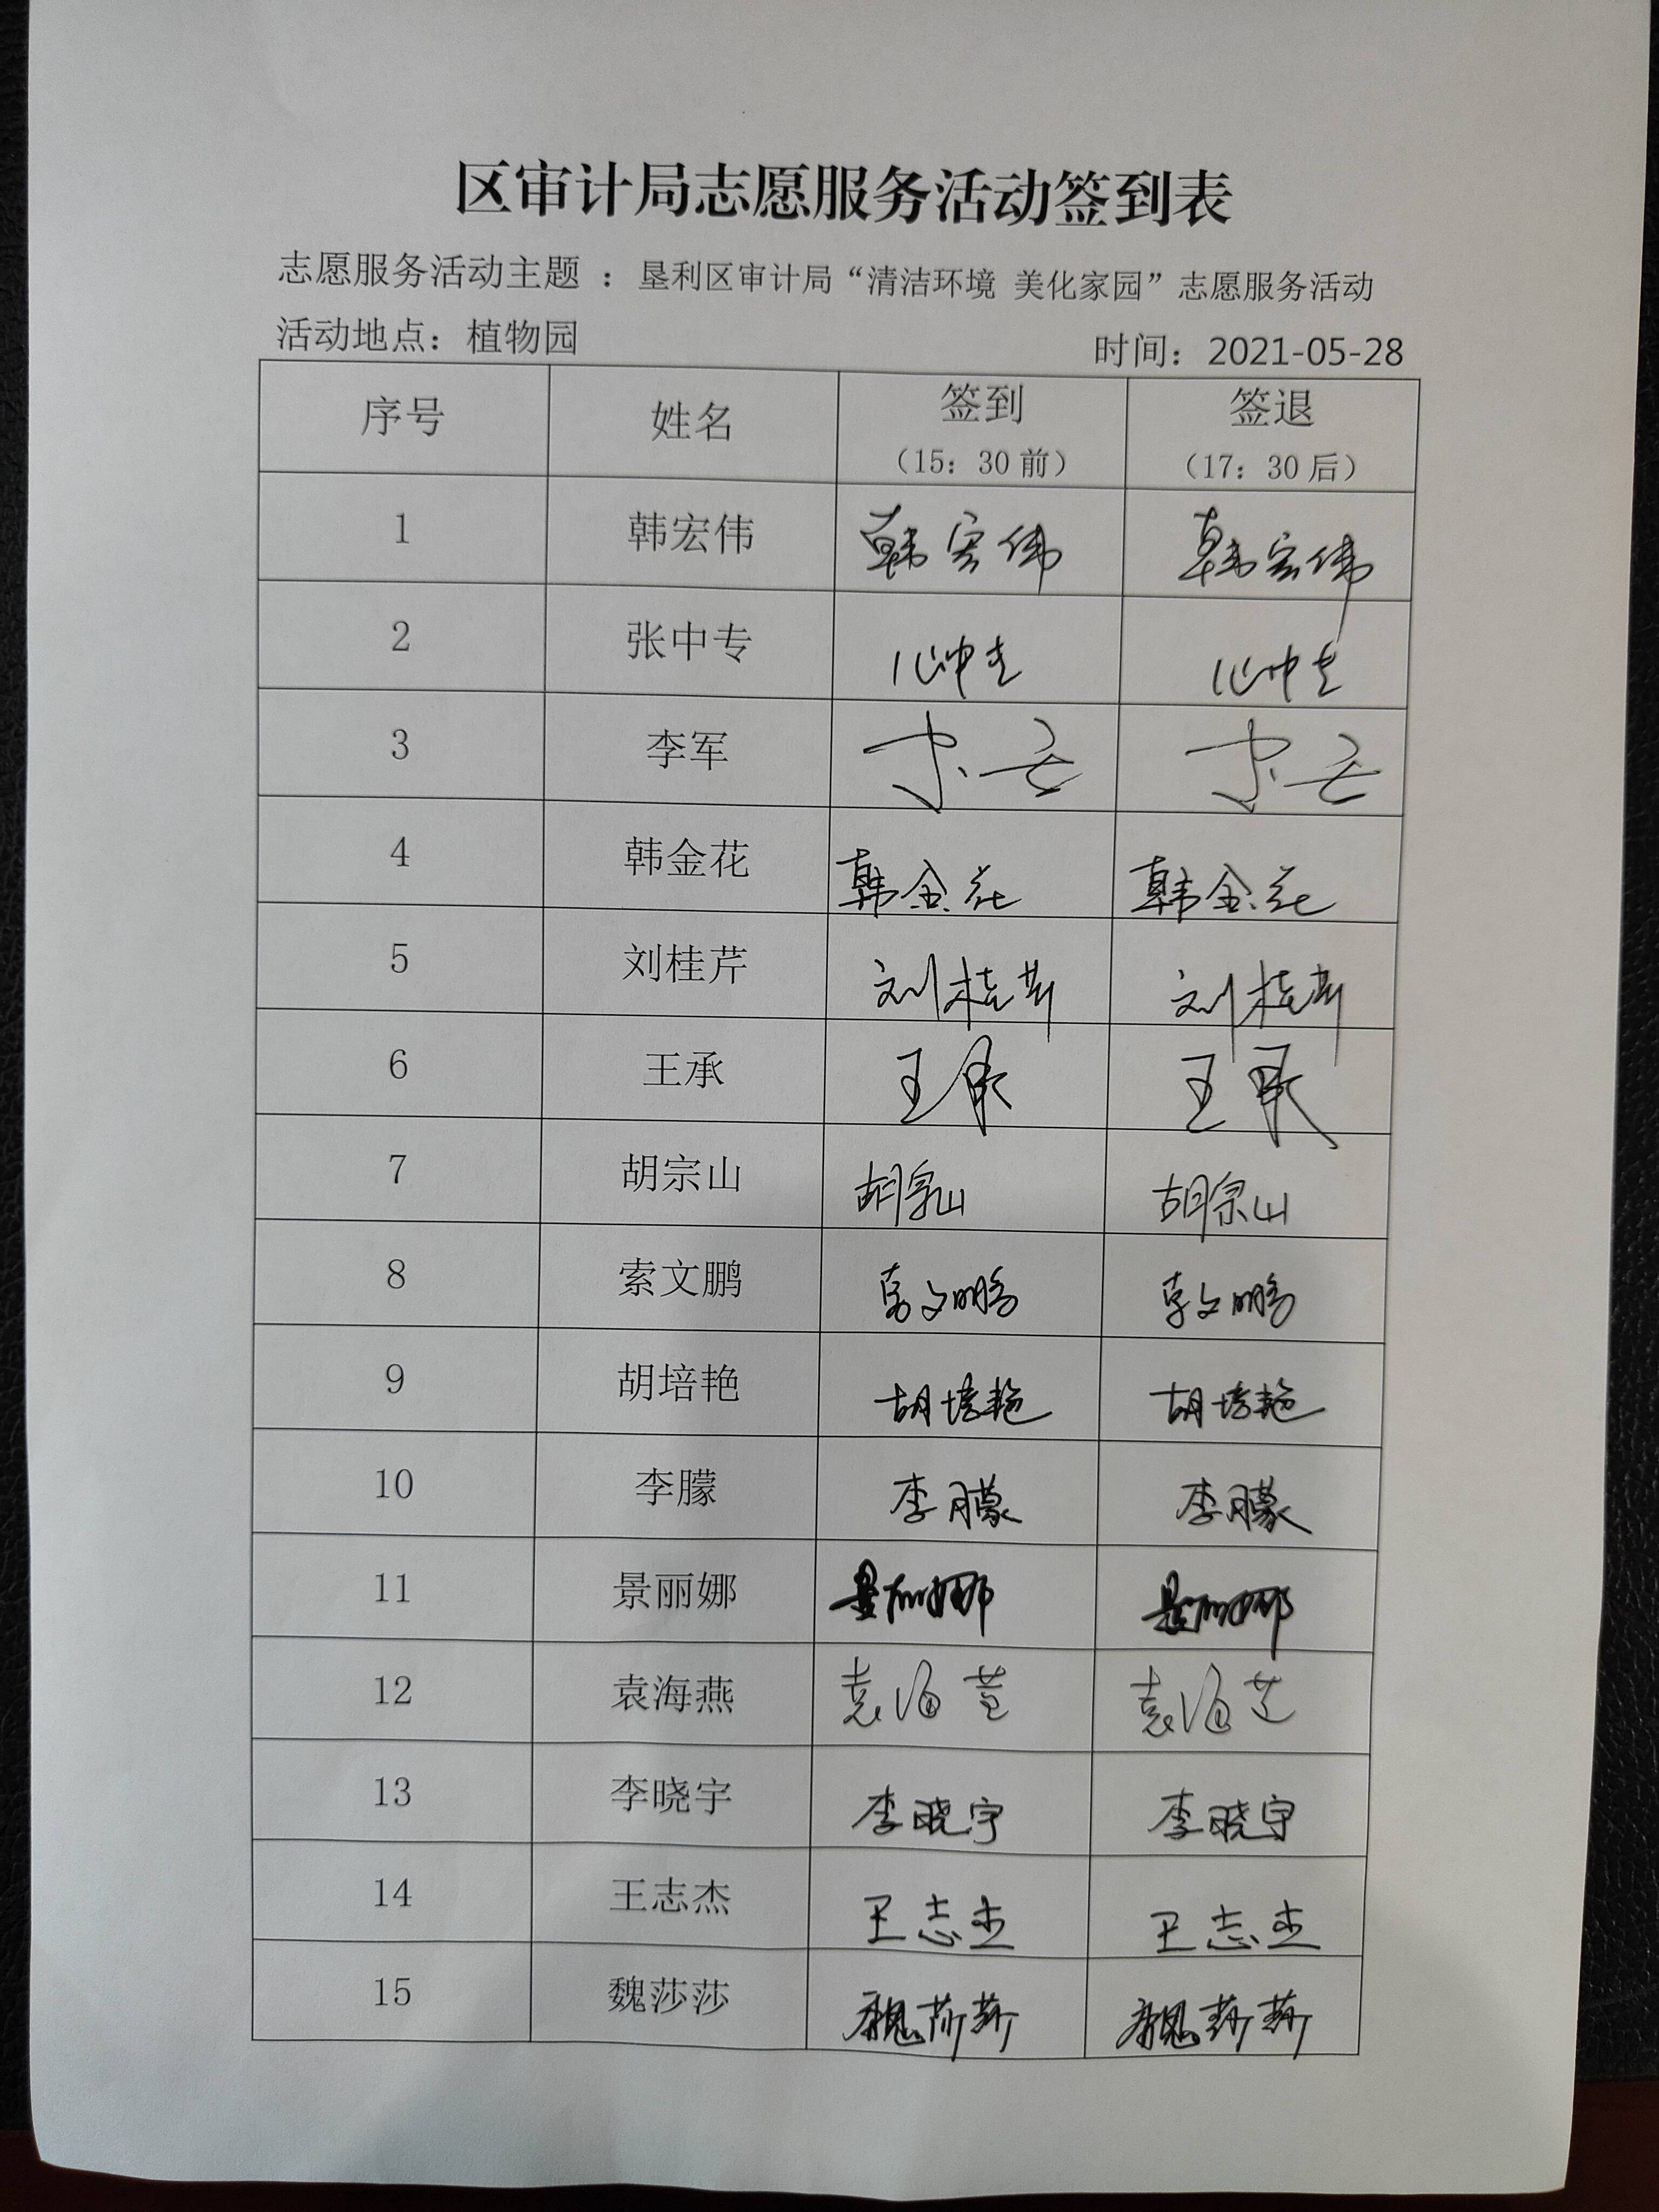 区审计局志愿服务活动签到表
志愿服务活动主题 ：垦利区审计局“清洁环境 美化家园”志愿服务活动
活动地点：植物园 时间：2021-05-28
序号 姓名 签到 签退
（15：30前） （17：30后）
1 韩宏伟 韩宏伟 韩宏伟
2 张中专 张中专 张中专
3 李军 李军 李军
4 韩金花 韩金花 韩金花
5 刘桂芹 刘桂芹 刘桂芹
6 王承 王承 王承
7 胡宗山 胡宗山 胡宗山
8 索文鹏 索文鹏 索文鹏
9 胡培艳 胡培艳 胡培艳
10 李朦 李朦 李朦
11 景丽娜 景丽娜 景丽娜
12 袁海燕 袁海燕 袁海燕
13 李晓宇 李晓宇 李晓宇
14 王志杰 王志杰 王志杰
15 魏莎莎 魏莎莎 魏莎莎